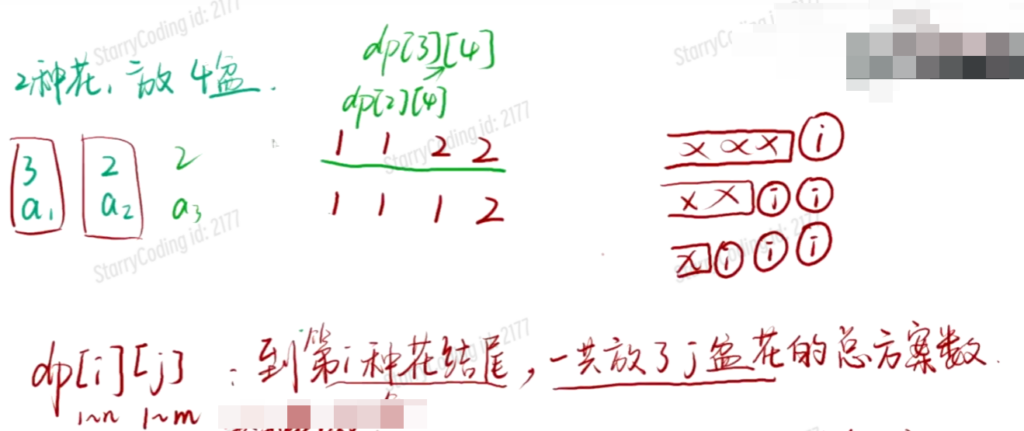 StarryCoding id: 2177
2种花, 放4盆.
dp[3][4]
dp[2][4]
3 2 2
a₁ a₂ a₃
1 1 2 2
1 1 1 2
StarryCoding id: 2177
x x x i
x x i i
x i i i
StarryCoding id: 2177
dp[i][j] : 到第i种花结尾, 一共放了j盆花的总方案数.
1~n 1~m